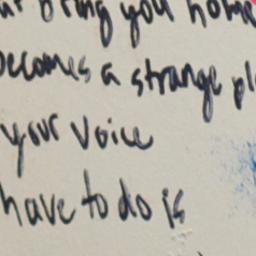 bring you home
becomes a strange pl
your voice
have to do is